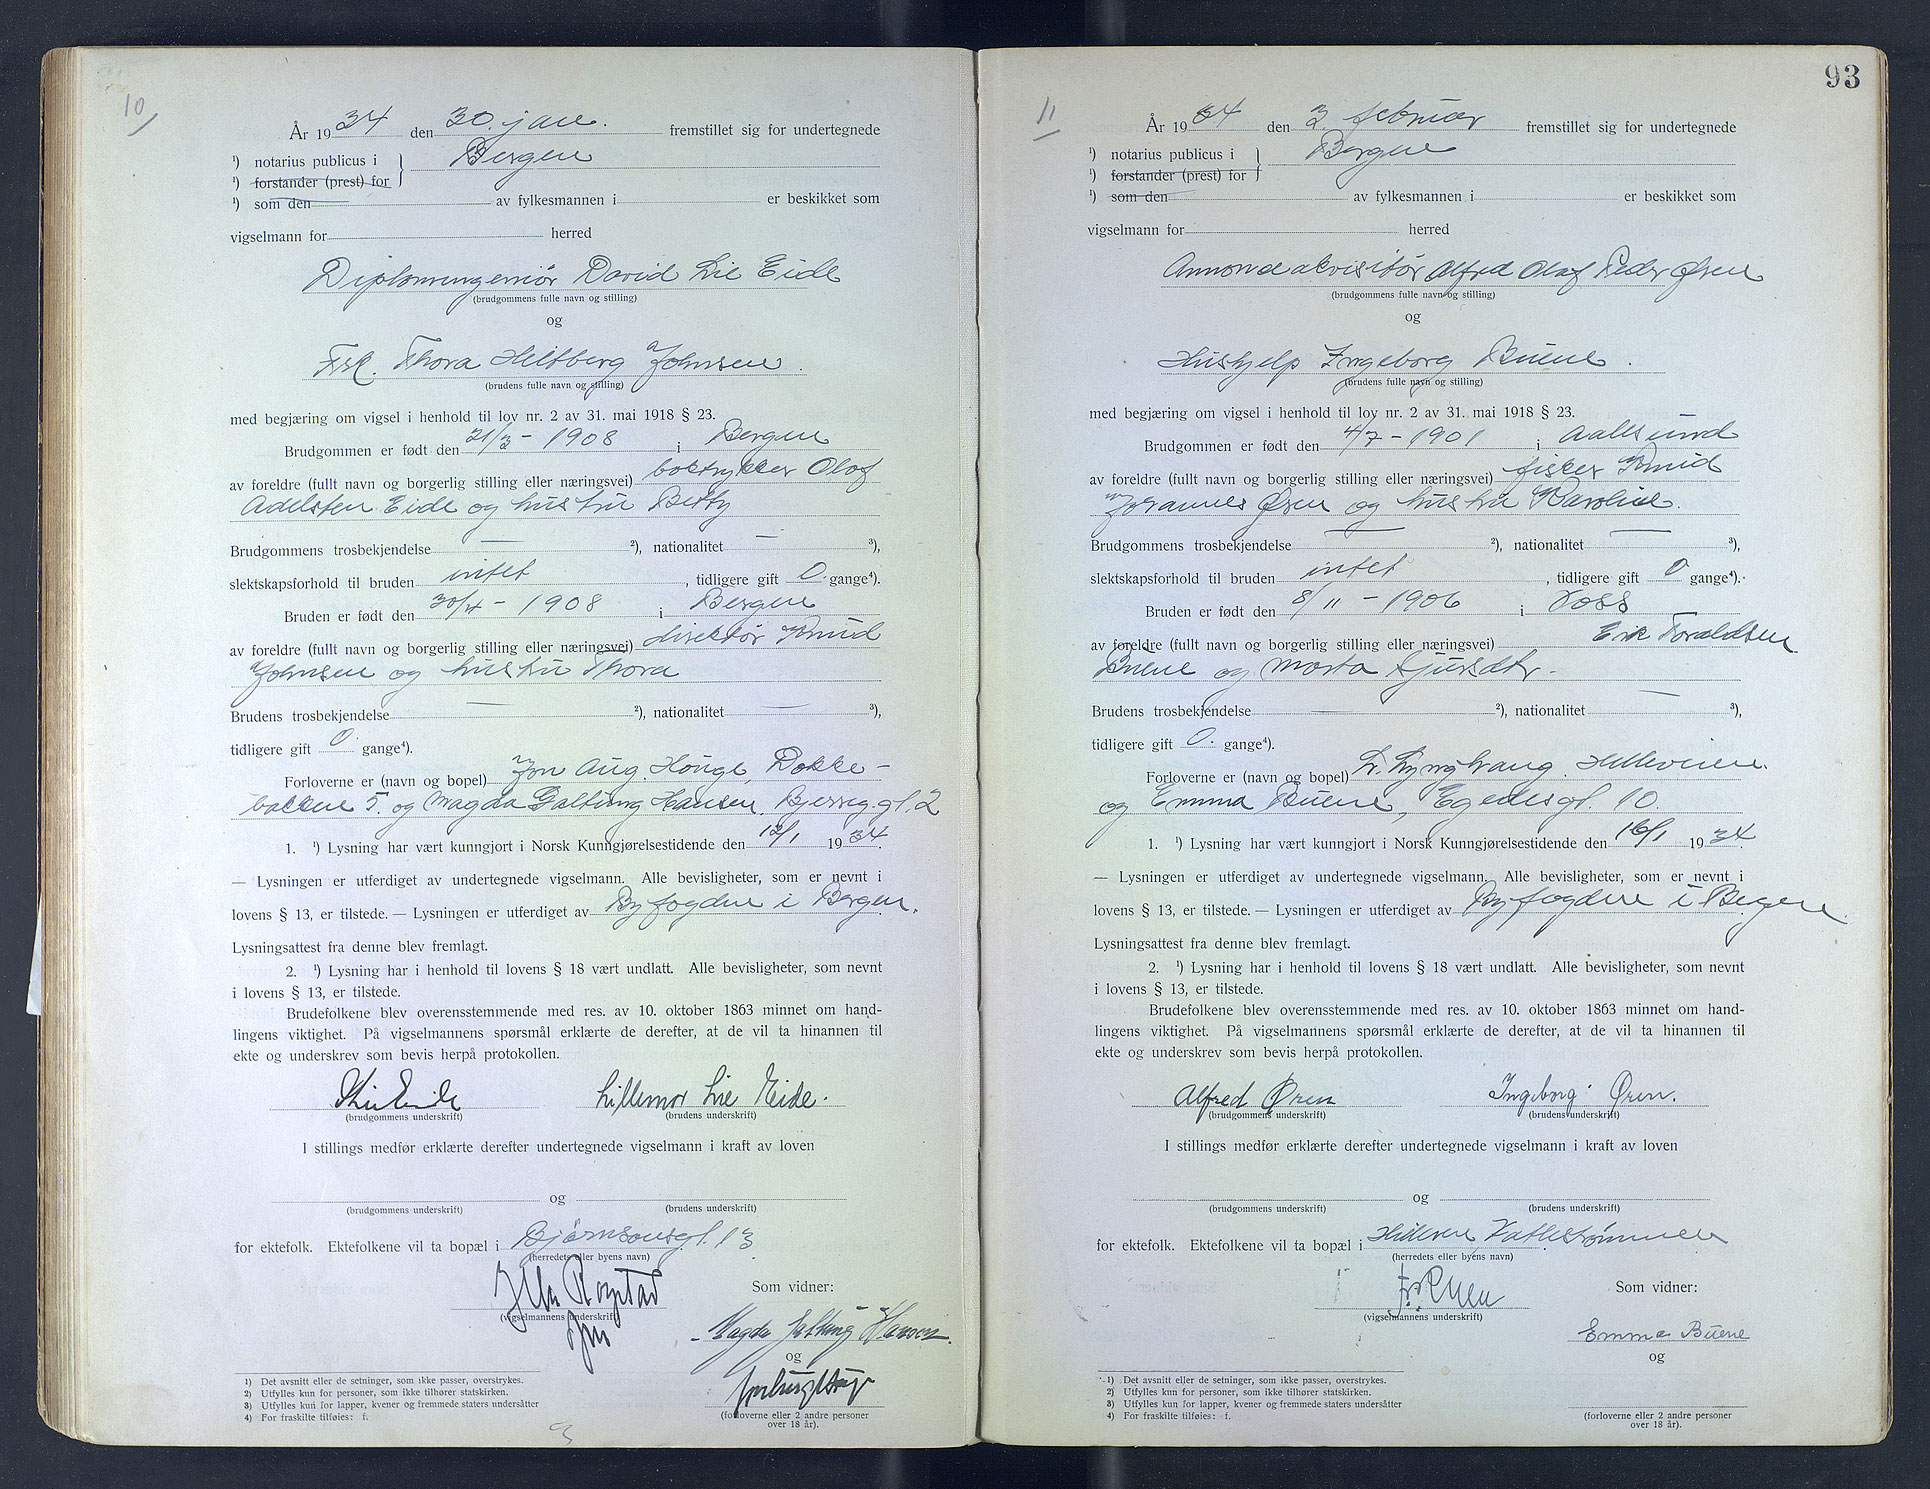 10
År 1934 den 30. jan. fremstillet sig for undertegnede
¹) notarius publicus i } Bergen
¹) forstander (prest) for
¹) som den av fylkesmannen i er beskikket som
vigselmann for herred
Diplomingeniør David Lie Eide
(brudgommens fulle navn og stilling)
og
Frk. Thora Heltberg Johnsen.
(brudens fulle navn og stilling)
med begjæring om vigsel i henhold til lov nr. 2 av 31. mai 1918 § 23.
Brudgommen er født den 21/3 - 1908 i Bergen
av foreldre (fullt navn og borgerlig stilling eller næringsvei) boktrykker Olaf
Adelsten Eide og hustru Betty
Brudgommens trosbekjendelse — ²), nationalitet — ³),
slektskapsforhold til bruden intet, tidligere gift 0. gange⁴).
Bruden er født den 30/4 - 1908 i Bergen
av foreldre (fullt navn og borgerlig stilling eller næringsvei) direktør Knud
Johnsen og hustru Thora
Brudens trosbekjendelse — ²), nationalitet — ³),
tidligere gift 0. gange⁴).
Forloverne er (navn og bopel) Jon Aug. Houge, Dokke-
bakken 5. og Magda Galtung Hansen, Bjerreg.gt. 2
1. ¹) Lysning har vært kunngjort i Norsk Kunngjørelsestidende den 12/1 1934.
— Lysningen er utferdiget av undertegnede vigselmann. Alle bevisligheter, som er nevnt i
lovens § 13, er tilstede. — Lysningen er utferdiget av Byfogden i Bergen.
Lysningsattest fra denne blev fremlagt.
2. ¹) Lysning har i henhold til lovens § 18 vært undlatt. Alle bevisligheter, som nevnt
i lovens § 13, er tilstede.
Brudefolkene blev overensstemmende med res. av 10. oktober 1863 minnet om hand-
lingens viktighet. På vigselmannens spørsmål erklærte de derefter, at de vil ta hinannen til
ekte og underskrev som bevis herpå protokollen.
Lie Eide Lillemor Lie Eide.
(brudgommens underskrift) (brudens underskrift)
I stillings medfør erklærte derefter undertegnede vigselmann i kraft av loven
og
(brudgommens underskrift) (brudens underskrift)
for ektefolk. Ektefolkene vil ta bopæl i Bjørnsonsgt. 13.
(herredets eller byens navn)
Rogstad Som vidner:
(vigselmannens underskrift)
Magda Galtung Hansen.
og
(forloverne eller 2 andre personer
over 18 år).
1) Det avsnitt eller de setninger, som ikke passer, overstrykes.
2) Utfylles kun for personer, som ikke tilhører statskirken.
3) Utfylles kun for lapper, kvener og fremmede staters undersåtter
4) For fraskilte tilføies: f.
93
11
År 1934 den 3. februar fremstillet sig for undertegnede
¹) notarius publicus i } Bergen
¹) forstander (prest) for
¹) som den av fylkesmannen i er beskikket som
vigselmann for herred
Annonceakvisitør Alfred Olaf Peder Øren
(brudgommens fulle navn og stilling)
og
Hushjelp Ingeborg Buene.
(brudens fulle navn og stilling)
med begjæring om vigsel i henhold til lov nr. 2 av 31. mai 1918 § 23.
Brudgommen er født den 4/7 - 1901 i Aalesund
av foreldre (fullt navn og borgerlig stilling eller næringsvei) fisker Knud
Johannes Øren og hustru Karoline.
Brudgommens trosbekjendelse — ²), nationalitet — ³),
slektskapsforhold til bruden intet, tidligere gift 0 gange⁴).
Bruden er født den 8/11 - 1906 i Voss
av foreldre (fullt navn og borgerlig stilling eller næringsvei) Erik Toraldsen
Buene og Marta Gjursdtr.
Brudens trosbekjendelse — ²), nationalitet — ³),
tidligere gift 0. gange⁴).
Forloverne er (navn og bopel) L. Lyngvang. Helleveien.
og Emma Buene, Egedesgt. 10.
1. ¹) Lysning har vært kunngjort i Norsk Kunngjørelsestidende den 16/1 1934.
— Lysningen er utferdiget av undertegnede vigselmann. Alle bevisligheter, som er nevnt i
lovens § 13, er tilstede. — Lysningen er utferdiget av Byfogden i Bergen
Lysningsattest fra denne blev fremlagt.
2. ¹) Lysning har i henhold til lovens § 18 vært undlatt. Alle bevisligheter, som nevnt
i lovens § 13, er tilstede.
Brudefolkene blev overensstemmende med res. av 10. oktober 1863 minnet om hand-
lingens viktighet. På vigselmannens spørsmål erklærte de derefter, at de vil ta hinannen til
ekte og underskrev som bevis herpå protokollen.
Alfred Øren Ingeborg Øren.
(brudgommens underskrift) (brudens underskrift)
I stillings medfør erklærte derefter undertegnede vigselmann i kraft av loven
og
(brudgommens underskrift) (brudens underskrift)
for ektefolk. Ektefolkene vil ta bopæl i Hilleren Vatlestrømmen
(herredets eller byens navn)
Som vidner:
(vigselmannens underskrift)
Emma Buene
og
(forloverne eller 2 andre personer
over 18 år).
1) Det avsnitt eller de setninger, som ikke passer, overstrykes.
2) Utfylles kun for personer, som ikke tilhører statskirken.
3) Utfylles kun for lapper, kvener og fremmede staters undersåtter
4) For fraskilte tilføies: f.